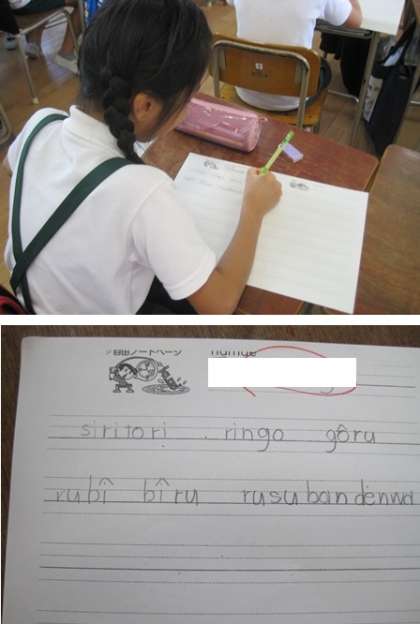 自由ノートページ
siritori ringo gôru
rubî bîru rusubandenwa